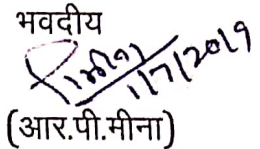 भवदीय
1/7/2019
(आर.पी.मीना)